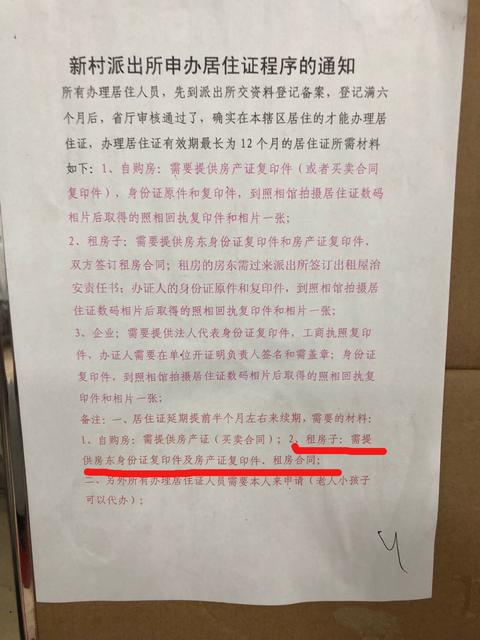 新村派出所申办居住证程序的通知
所有办理居住人员，先到派出所交资料登记备案，登记满六
个月后，省厅审核通过了，确实在本辖区居住的才能办理居
住证，办理居住证有效期最长为12个月的居住证所需材料
如下：1、自购房：需要提供房产证复印件（或者买卖合同
复印件），身份证原件和复印件，到照相馆拍摄居住证数码
相片后取得的照相回执复印件和相片一张；
2、租房子：需要提供房东身份证复印件和房产证复印件，
双方签订租房合同；租房的房东需过来派出所签订出租屋治
安责任书；办证人的身份证原件和复印件，到照相馆拍摄居
住证数码相片后取得的照相回执复印件和相片一张；
3、企业；需要提供法人代表身份证复印件，工商执照复印
件，办证人需要在单位开证明负责人签名和需盖章；身份证
复印件，到照相馆拍摄居住证数码相片后取得的照相回执复
印件和相片一张；
备注：一、居住证延期提前半个月左右来续期，需要的材料：
1、自购房：需提供房产证（买卖合同）；2、租房子：需提
供房东身份证复印件及房产证复印件、租房合同；
二、另外所有办理居住证人员需要本人来申请（老人小孩子
可以代办）；